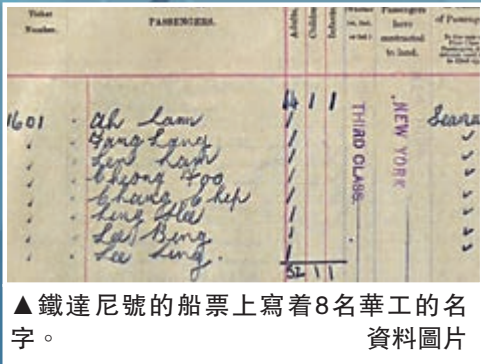 Ticket Number.
PASSENGERS.
Adults.
Children
Infants
Passengers have contracted to land.
14 1 1
1601 Ah Lam
Fang Lang
Len Lam
Cheong Foo
Chang Chip
Ling Hee
Lee Bing
Lee Ling.
THIRD CLASS.
NEW YORK
52 1 1
▲鐵達尼號的船票上寫着8名華工的名
字。 資料圖片